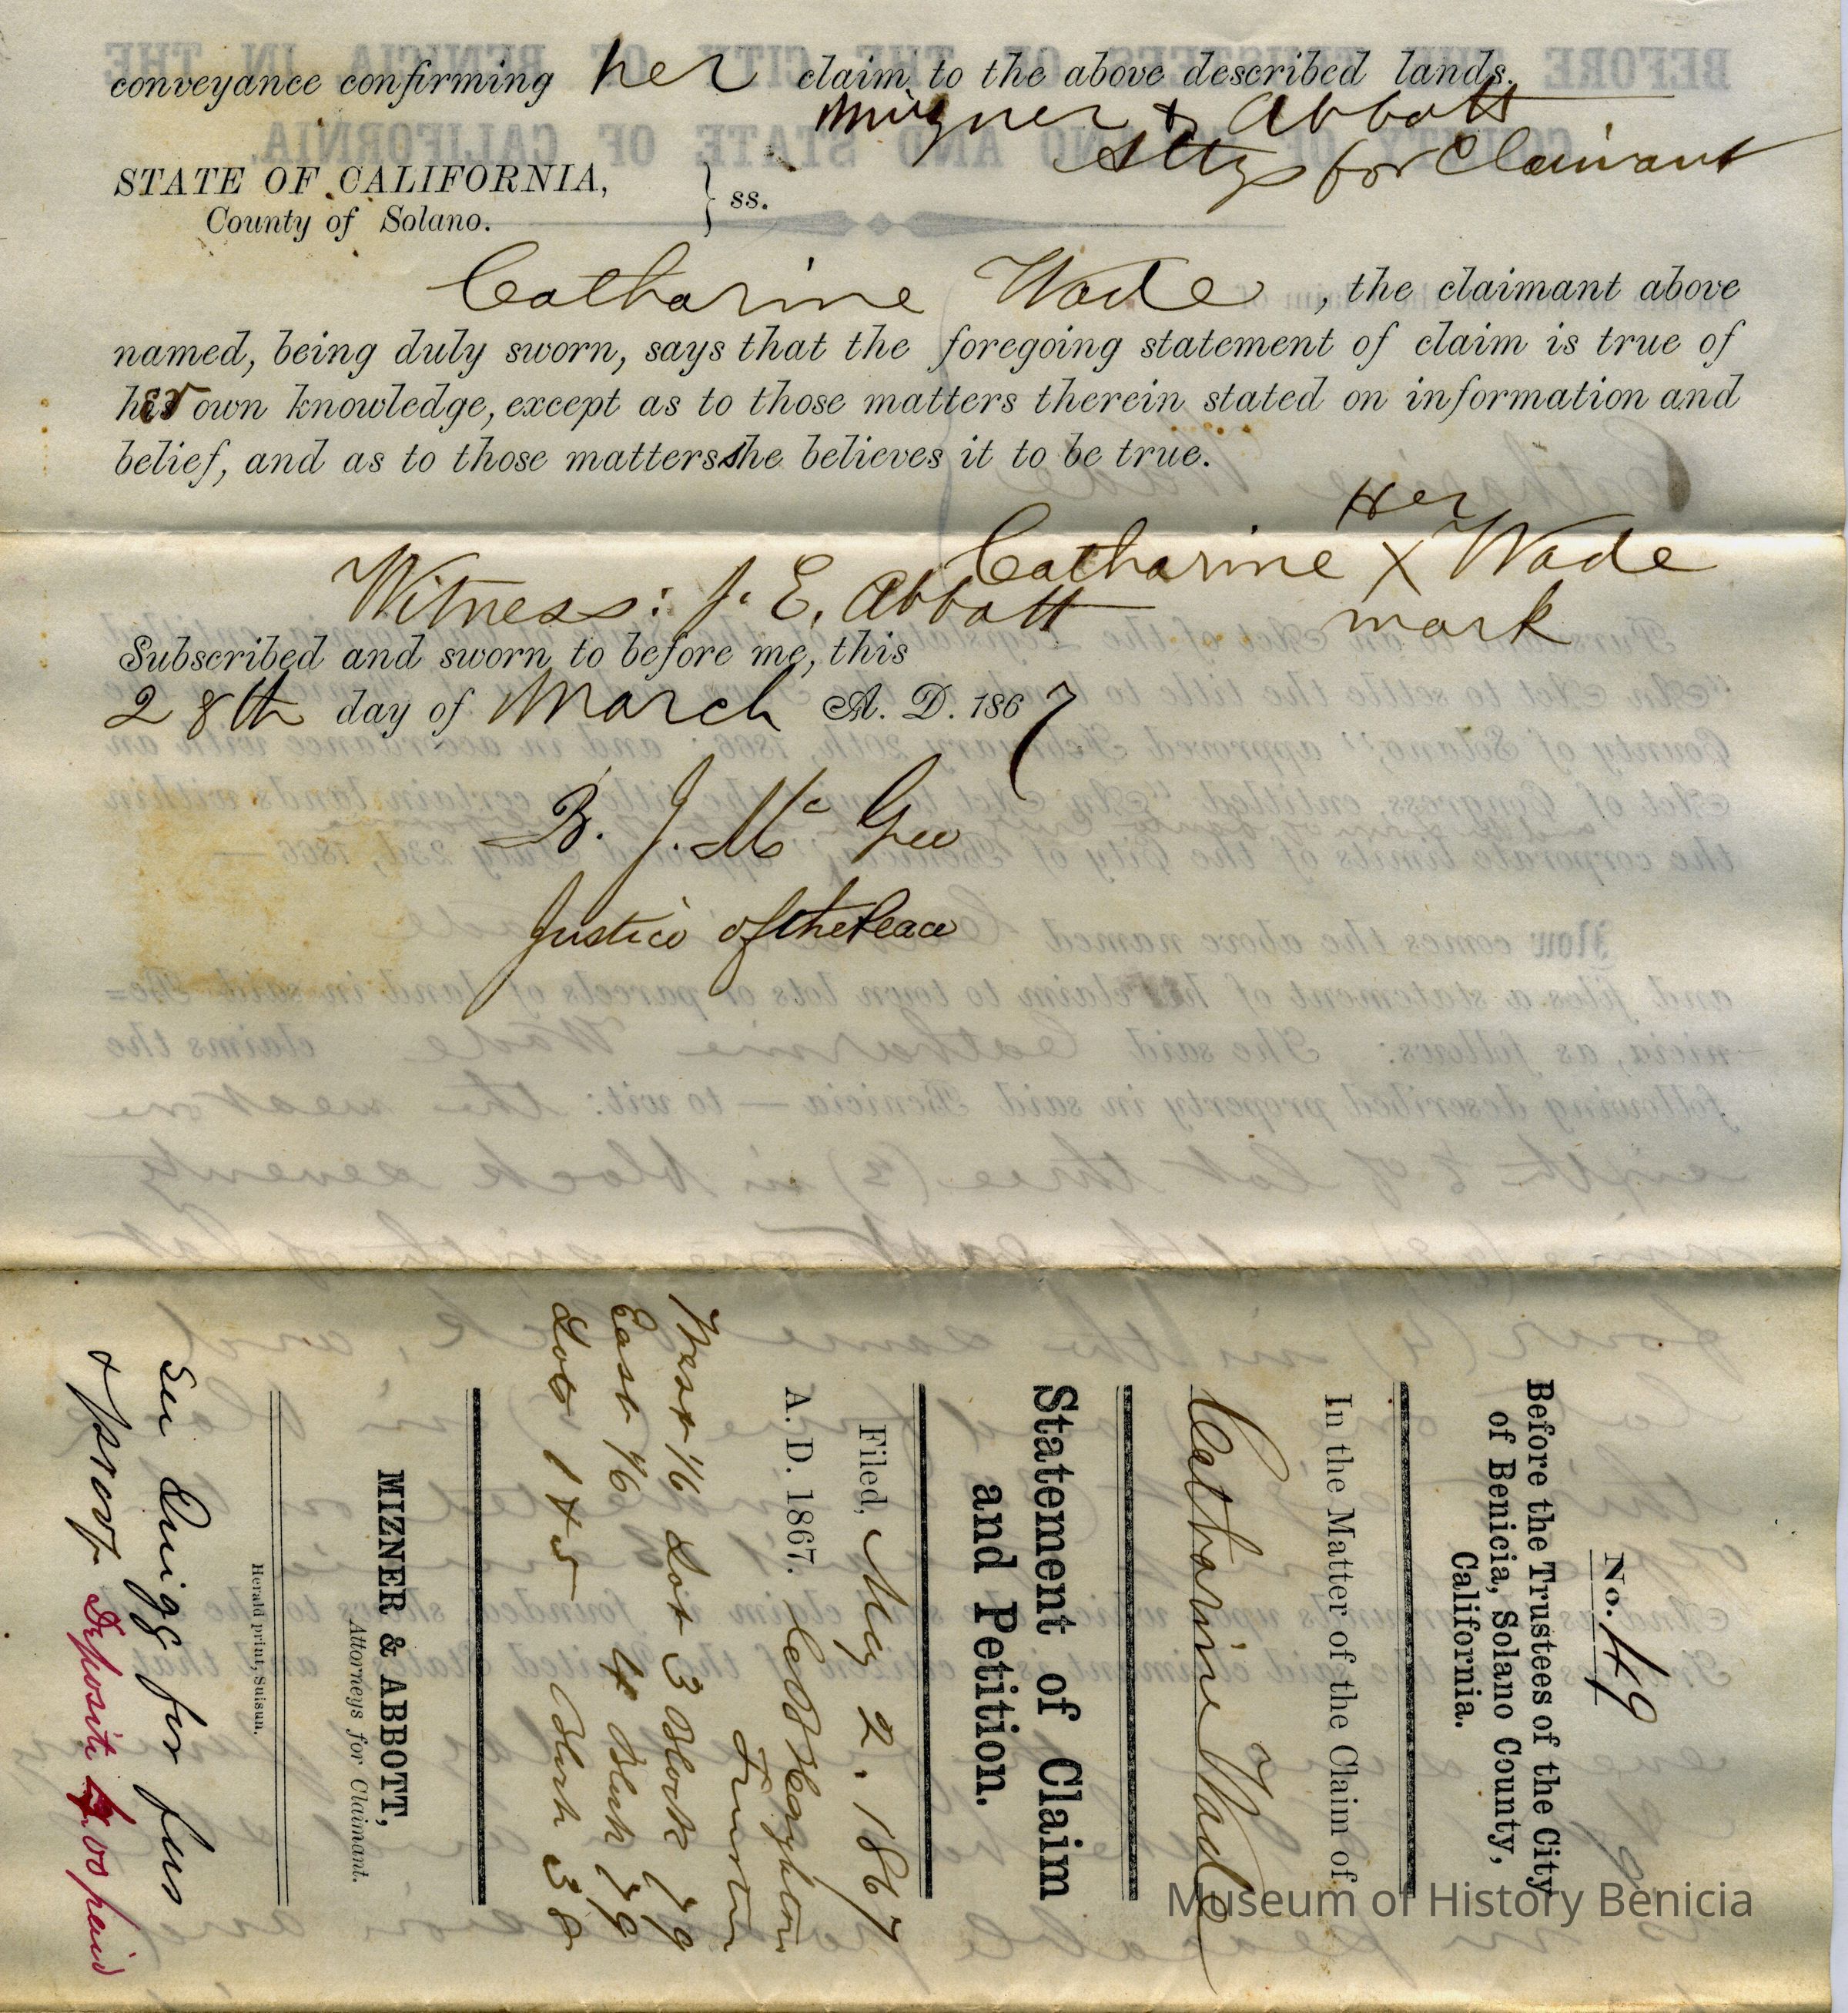 conveyance confirming her claim to the above described lands.
Mizner & Abbott
Attys for Claimant
STATE OF CALIFORNIA,
County of Solano. } ss.
Catharine Wade, the claimant above
named, being duly sworn, says that the foregoing statement of claim is true of
her own knowledge, except as to those matters therein stated on information and
belief, and as to those matters she believes it to be true.
Her
Catharine X Wade
mark
Witness: J. E. Abbott
Subscribed and sworn to before me, this
28th day of March A. D. 1867
B. J. Mc Gee
Justice of the Peace
No. 49
Before the Trustees of the City
of Benicia, Solano County,
California.
In the Matter of the Claim of
Catharine Wade
Statement of Claim
and Petition.
Filed, May 2. 1867
A. D. 1867.
Trustee
West 1/6 Lot 3 Block 79
East 1/6 4 Block 79
Lots 1 & 5 Block 38
MIZNER & ABBOTT,
Attorneys for Claimant.
Herald print, Suisun.
for fees
& proof Deposite 4.00 paid
Museum of History Benicia